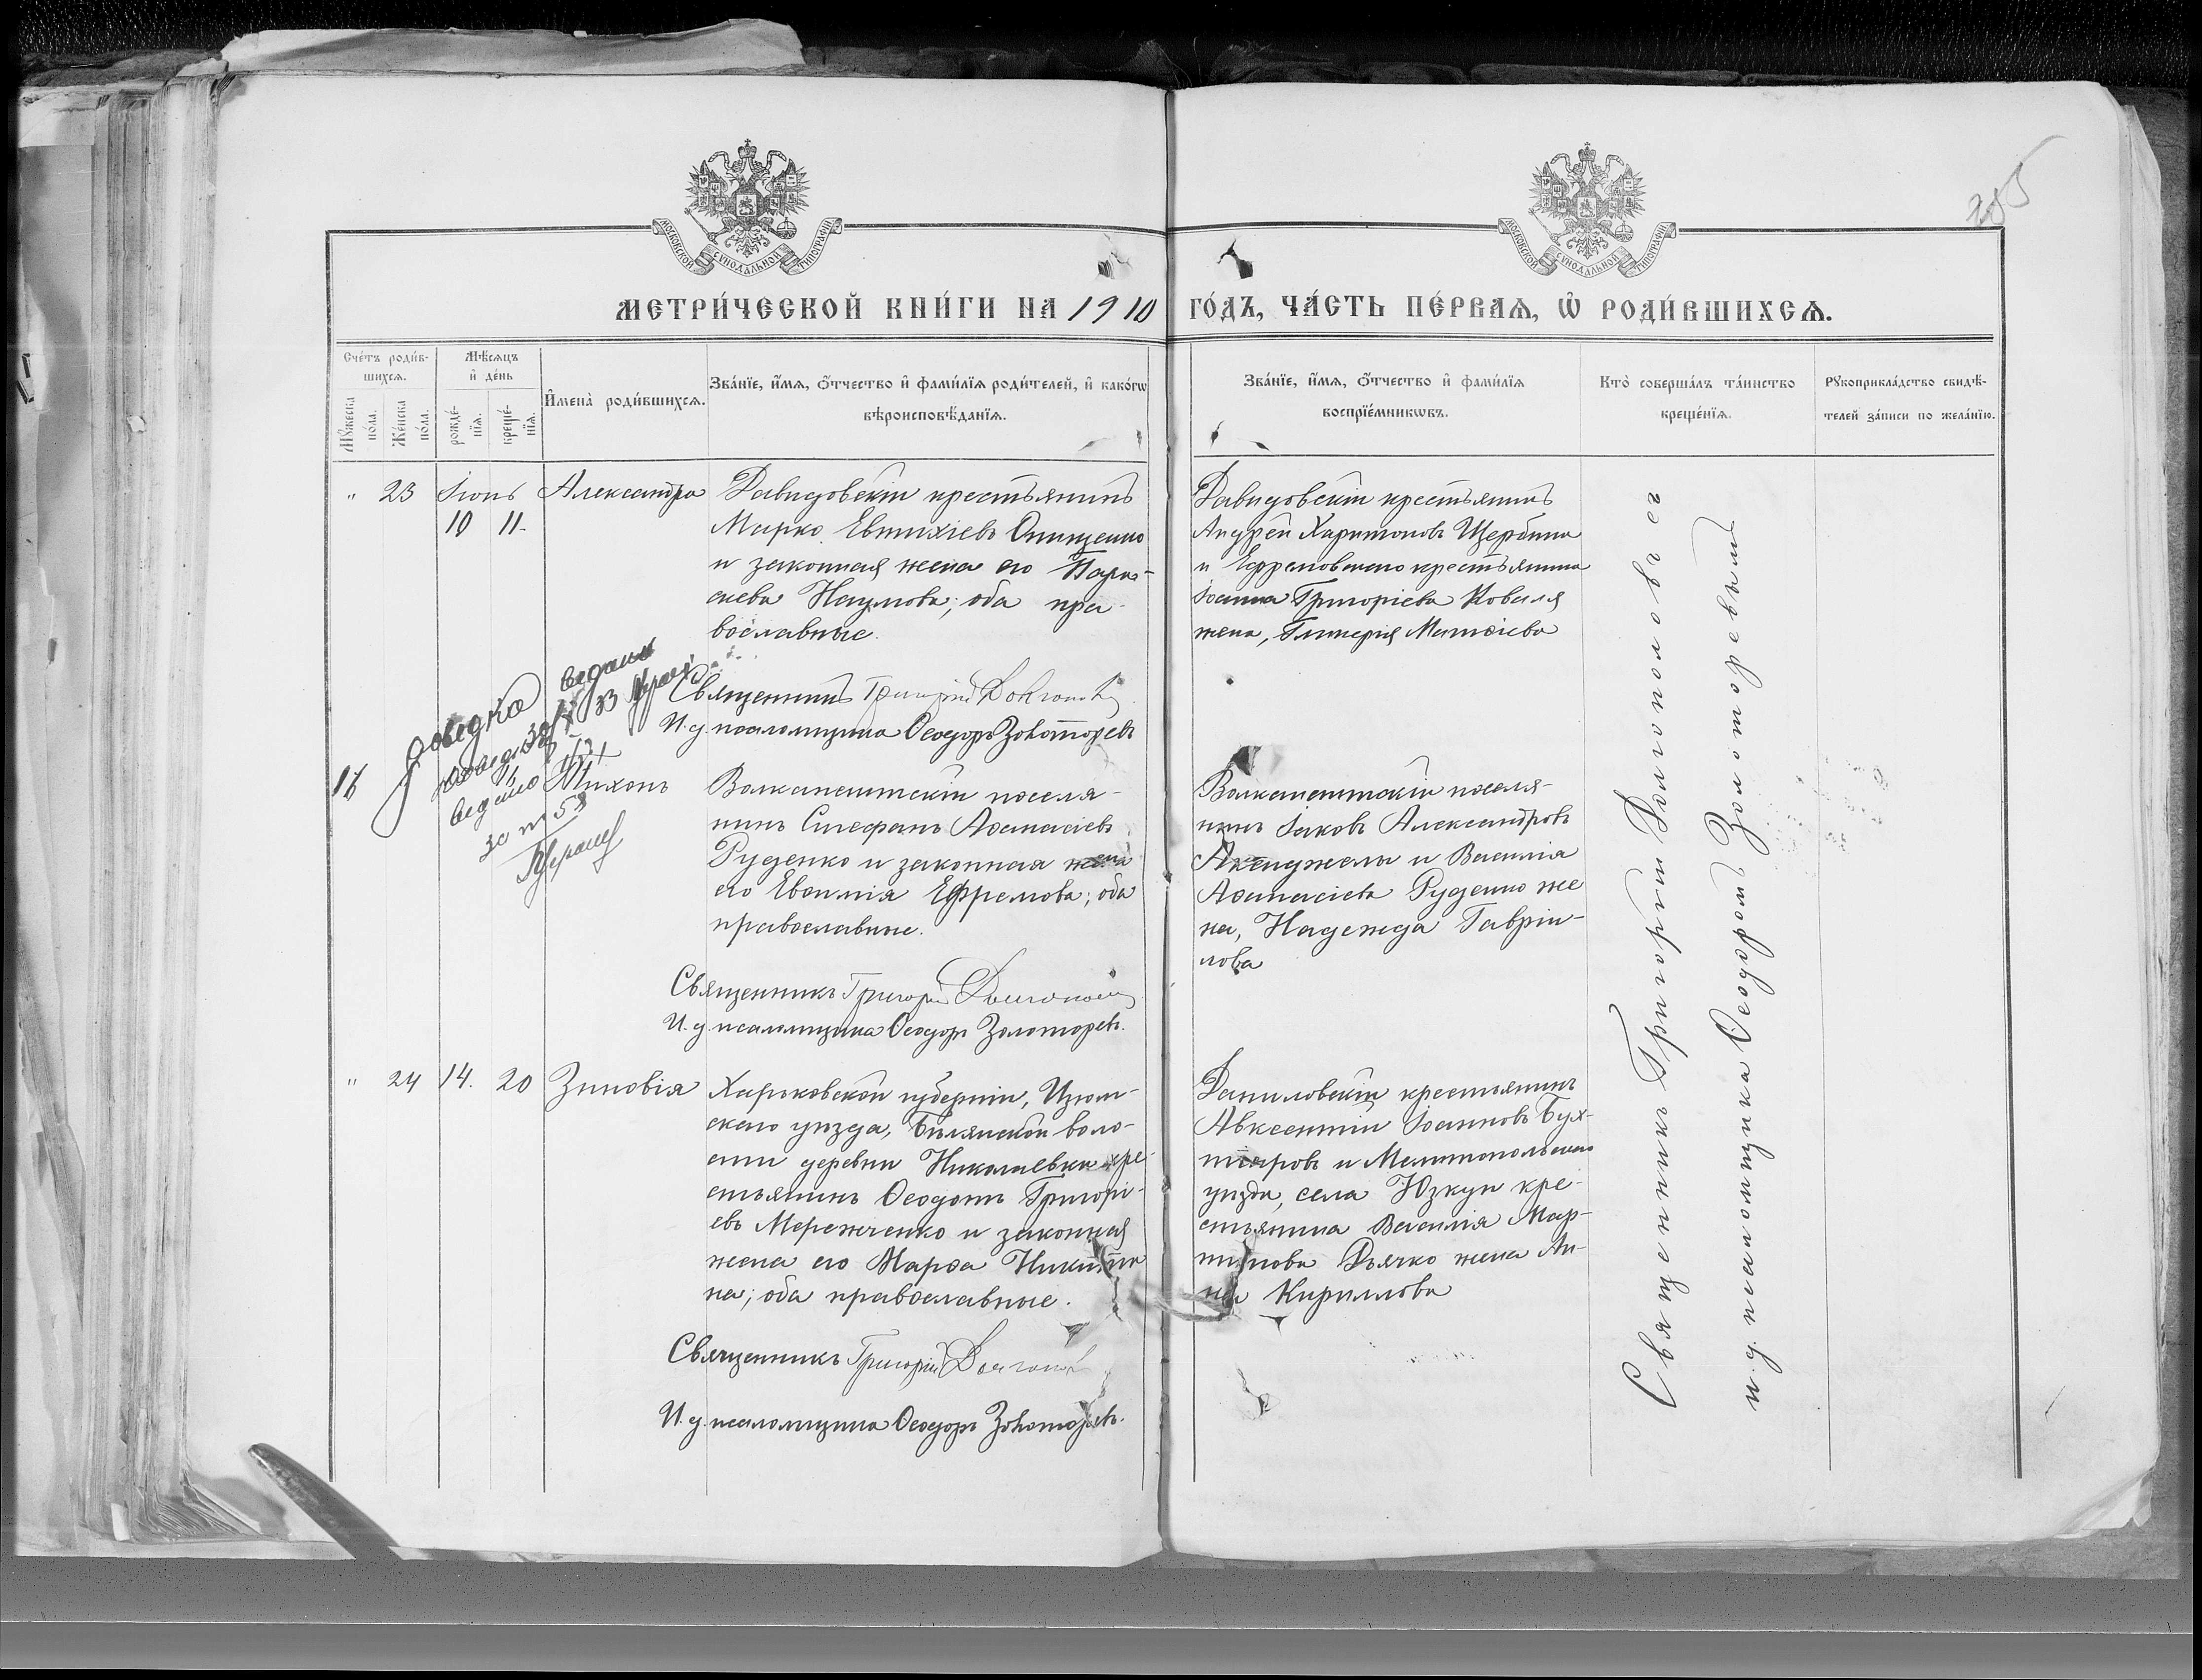 МОСКОВСКОЙ СѴНОДАЛЬНОЙ ТИПОГРАФІИ
МОСКОВСКОЙ СѴНОДАЛЬНОЙ ТИПОГРАФІИ
МЕТРИ́ЧЕСКОЙ КНИ́ГИ НА 1910 ГО́ДЪ, ЧА́СТЬ ПЕ́РВАѦ, Ѡ҆ РОДИ́ВШИХСѦ.
Сче́тъ роди́в-
шихсѧ.
Мꙋ́жеска
по́ла.
Же́нска
по́ла.
Мѣ́сѧцъ
и҆ де́нь
рожде́-
нїѧ.
креще́-
нїѧ.
И҆мена̀ роди́вшихсѧ.
Зва́нїе, и҆́мѧ, ѻ҆́тчество и҆ фами́лїѧ роди́телей, и҆ како́гѡ
вѣроисповѣ́данїѧ.
Зва́нїе, и҆́мѧ, ѻ҆́тчество и҆ фами́лїѧ
воспрїе́мникѡвъ.
Кто̀ соверша́лъ та́инство
креще́нїѧ.
Рꙋкоприкла́дство свидѣ́-
телей за́писи по жела́нїю.
" 23 Іюнь 10 11. Александра
Давидовскій крестьянинъ
Марко Евтихіевъ Онищенко
и законная жена его Парас-
кева Наумова; оба пра-
вославные.
Священникъ Григорій
И. д. псаломщика Ѳеодоръ Золоторевъ
Давидовскій крестьянинъ
Андрей Харитоновъ Щербина
и Ефремовскаго крестьянина
Іоанна Григоріева Коваля
жена, Гликерія Матѳіева
Тихонъ
Волканештскій поселя-
нинъ Стефанъ Аѳанасіевъ
Руденко и законная жена
его Евѳимія Ефремова; оба
православные.
Священникъ Григорій
И. д. псаломщика Ѳеодоръ Золоторевъ.
Волканештскій поселя-
нинъ Іаковъ Александровъ
и Василія
Аѳанасіева Руденко же
на, Надежда Гавріи-
лова
" 24 14. 20 Зиновія
Харьковской губерніи, Изюм-
скаго уѣзда, Бѣлянской воло-
сти деревни Николаевки кре-
стьянинъ Ѳеодотъ Григорі-
евъ Мережченко и законная
жена его Марѳа Никити
на; оба православные.
Священникъ Григорій
И. д. псаломщика Ѳеодоръ Золоторевъ.
Даниловскій крестьянинъ
Авксентій Іоанновъ Бух-
тіяровъ и Мелитопольскаго
уѣзда, села Юзкуи кре-
стьянина Василія Мар-
тинова Дьячко жена Ан-
на Кириллова
Священникъ Григорій Долгополовъ съ
и. д. псаломщика Ѳеодоромъ Золоторевымъ